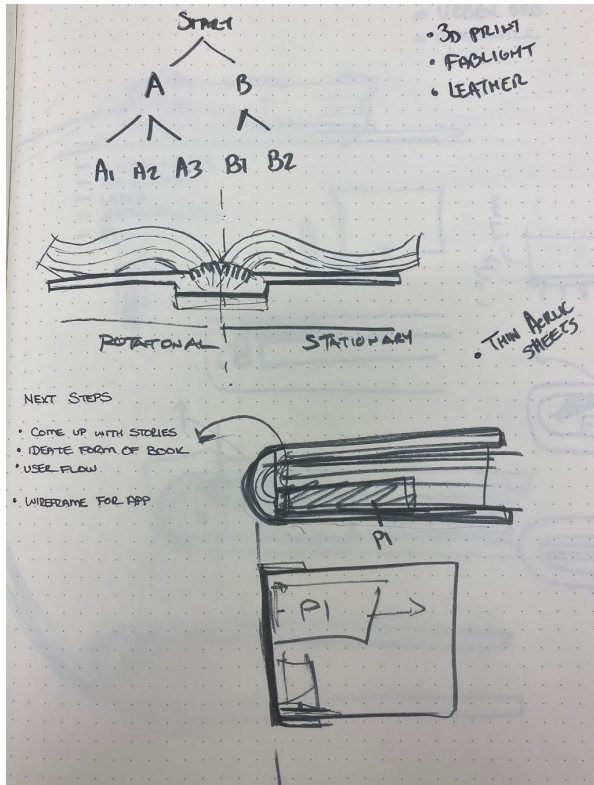 START
A B
A1 A2 A3 B1 B2
• 3D PRINT
• FABLIGHT
• LEATHER
ROTATIONAL STATIONARY
• THIN ACRLIC
SHEETS
NEXT STEPS
• COME UP WITH STORIES
• IDEATE FORM OF BOOK
• USER FLOW
• WIREFRAME FOR APP
P1
P1